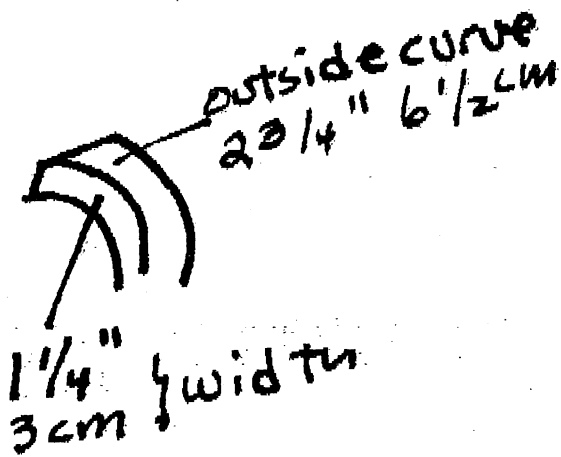 outside curve
2 3/4" 6 1/2 cm
1 1/4"
3 cm } width